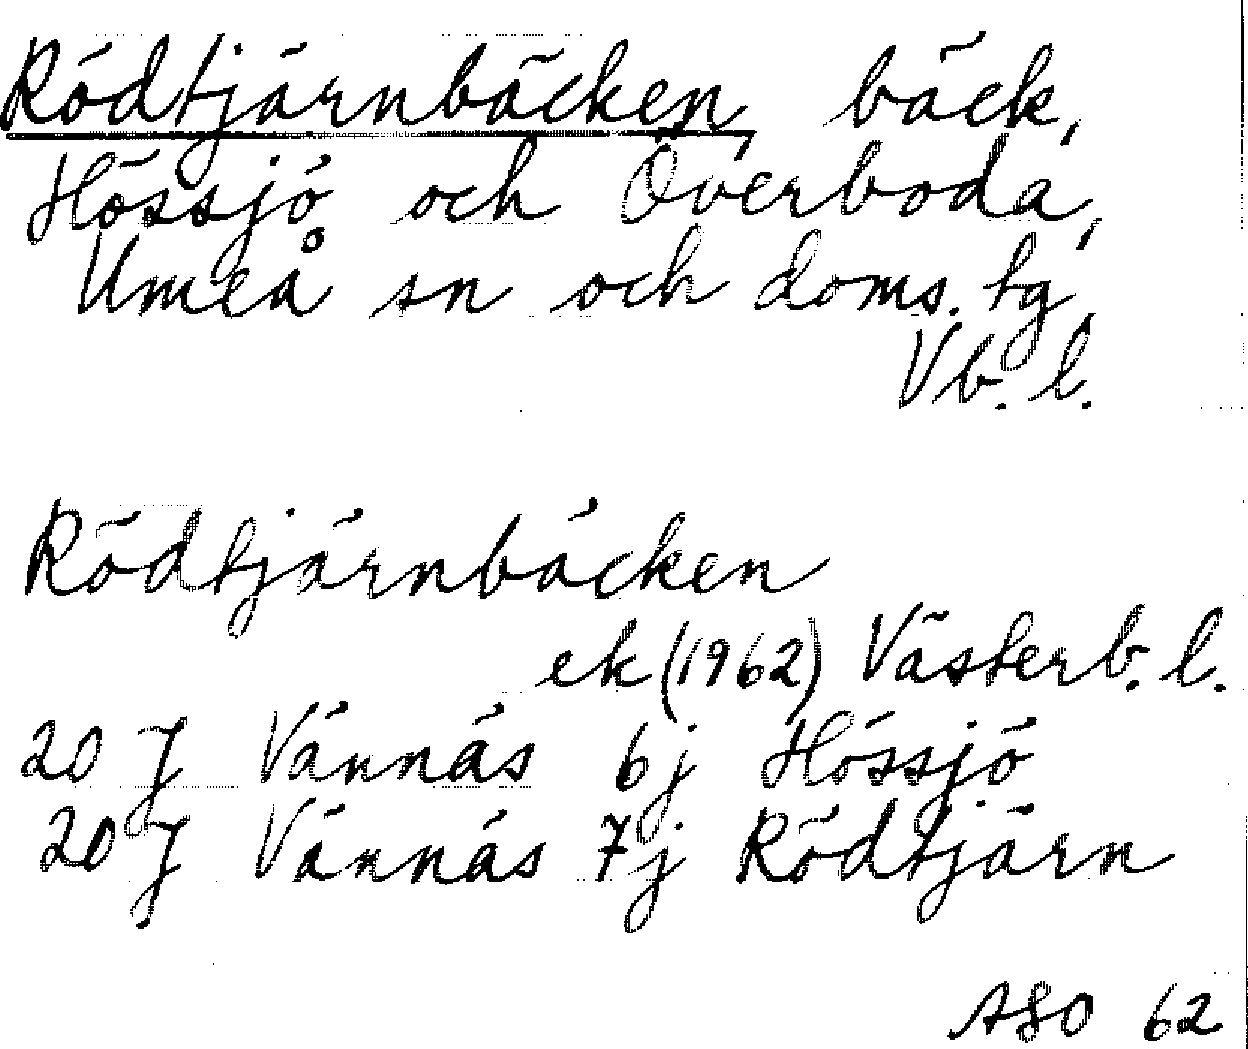 Rödtjärnbäcken, bäck,
Hössjö och Överboda,
Umeå sn och doms. tg,
Vb. l.
Rödtjärnbäcken
ek (1962) Västerb. l.
20 J Vännäs 6j Hössjö
20 J Vännäs 7j Rödtjärn
ASO 62